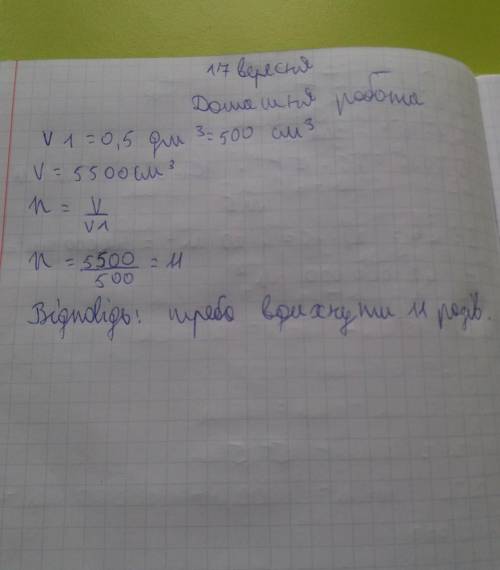 17 вересня
Домашня робота
V1 = 0,5 дм³ = 500 см³
V = 5500 см³
n = V/V1
n = 5500/500 = 11
Відповідь: треба вдихнути 11 разів.